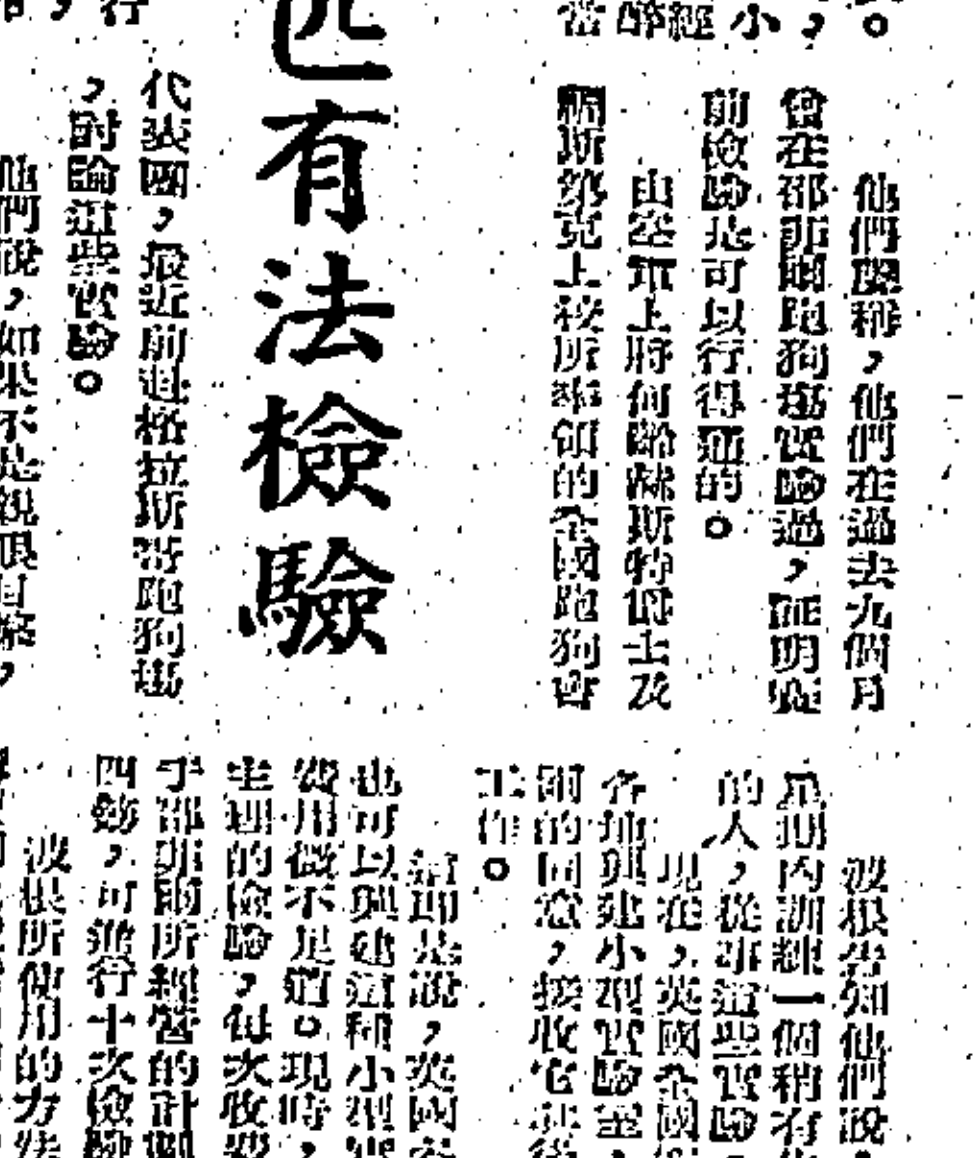 他們聲稱，他們在過去九個月
曾在邵菲爾跑狗場實驗過，証明賽
前檢驗是可以行得通的。
由空軍上將何齡赫斯特爵士及
斯第克上校所率領的全國跑狗會
匹有法檢驗
代表團，最近前赴格拉斯哥跑狗場
，討論這些實驗。
他們說，如果不是親眼目擊，
波根告知他們說，
星期內訓練一個稍有
的人，從事這些實驗，
現在，英國全國
各地興建小型實驗室，
爾的同意，接收它
工作。
這即是說，英國
也可以興建這種小型實
費用微不足道。現時，
主理的檢驗，每次收費
于邵菲爾所經營的計劃
四鎊，可進行十次檢驗
波根所使用的方法